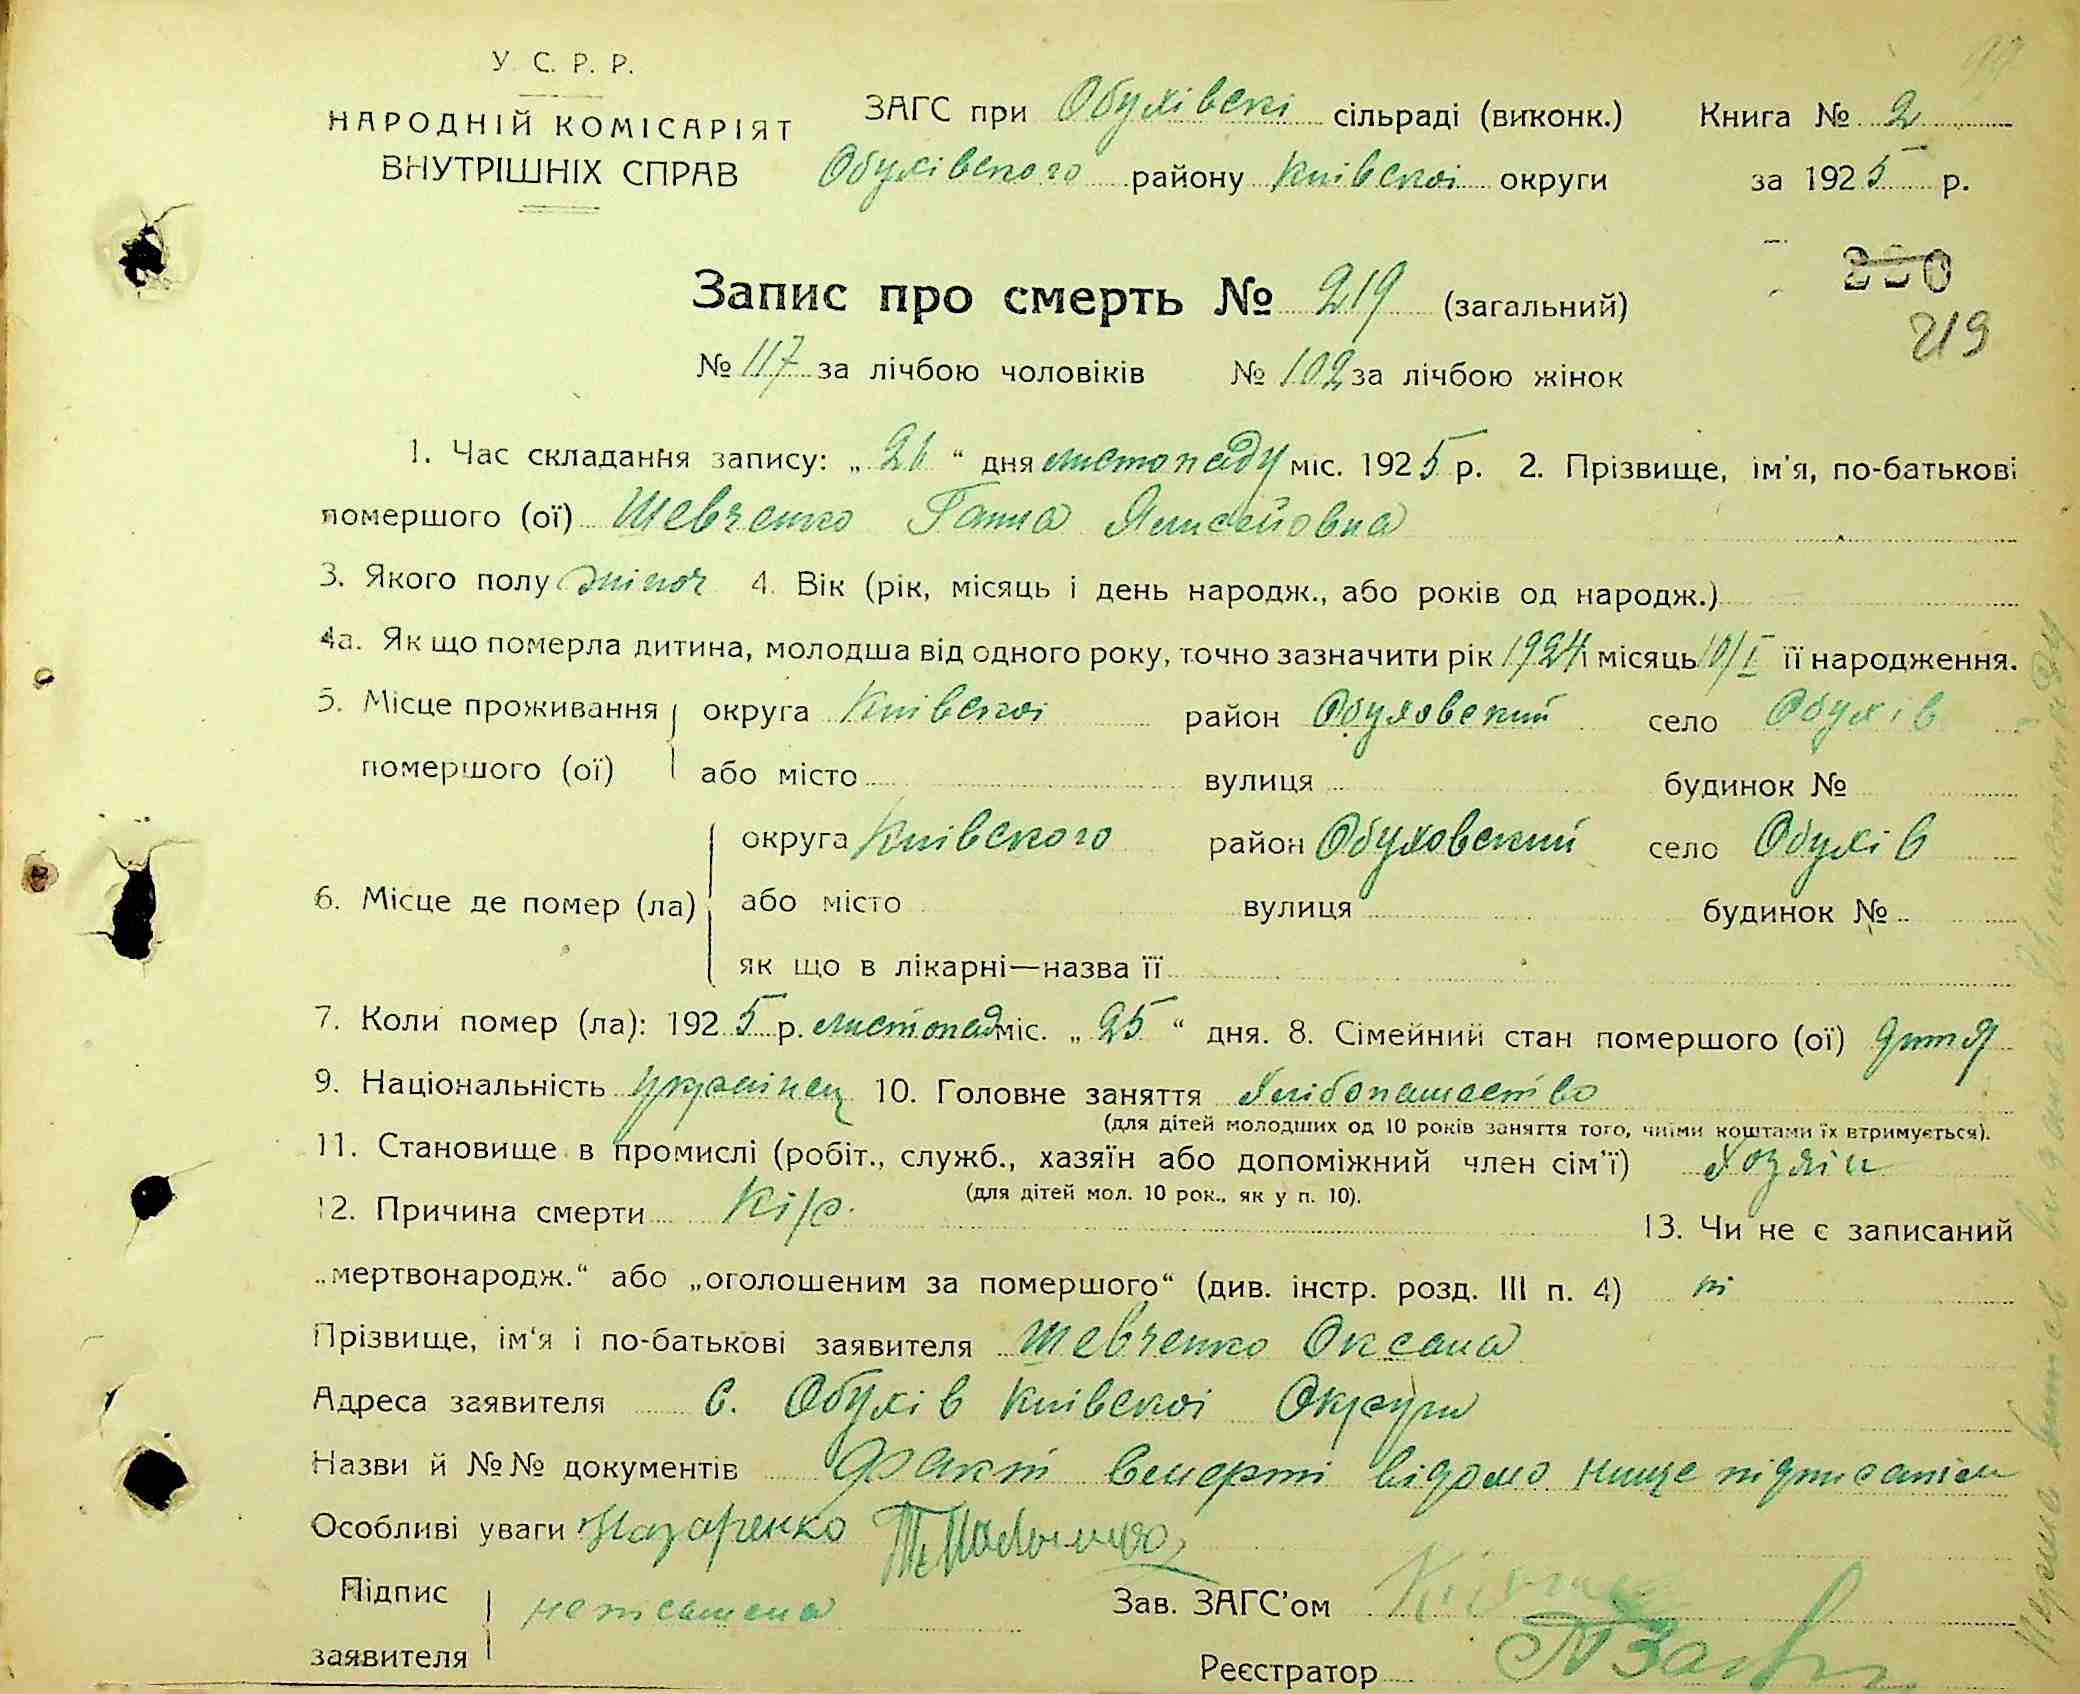 У. С. Р. Р.
НАРОДНІЙ КОМІСАРІЯТ
ВНУТРІШНІХ СПРАВ
ЗАГС при Обухівскі сільраді (виконк.) Книга № 2
Обухівского району Київскої округи за 1925 р.
Запис про смерть № 219 (загальний)
330
219
№ 117 за лічбою чоловіків № 102 за лічбою жінок
1. Час складання запису: „26“ дня листопаду міс. 1925 р. 2. Прізвище, ім'я, по-батькові
помершого (ої) Шевченко Ганна
3. Якого полу жіноч 4. Вік (рік, місяць і день народж., або років од народж.)
4а. Як що померла дитина, молодша від одного року, точно зазначити рік 1924 і місяць 10/I її народження.
5. Місце проживання помершого (ої) округа Київскої район Обуховский село Обухів
або місто вулиця будинок №
6. Місце де помер (ла) округа Київского район Обуховский село Обухів
або місто вулиця будинок №
як що в лікарні—назва її
7. Коли помер (ла): 1925 р. листопад міс. „25“ дня. 8. Сімейний стан помершого (ої) дитя
9. Національність українец 10. Головне заняття Хлібопашество
(для дітей молодших од 10 років заняття того, чиїми коштами їх втримується).
11. Становище в промислі (робіт., служб., хазяїн або допоміжний член сім'ї) Хозяїн
(для дітей мол. 10 рок., як у п. 10).
12. Причина смерти Кір. 13. Чи не є записаний
„мертвонародж.“ або „оголошеним за помершого“ (див. інстр. розд. III п. 4) ні
Прізвище, ім'я і по-батькові заявителя Шевченко Оксана
Адреса заявителя с. Обухів Київскої Округи
Назви й №№ документів Факт смерті відомо нище підписанім
Особливі уваги Назаренко
Підпис заявителя неписмена
Зав. ЗАГС'ом
Реєстратор